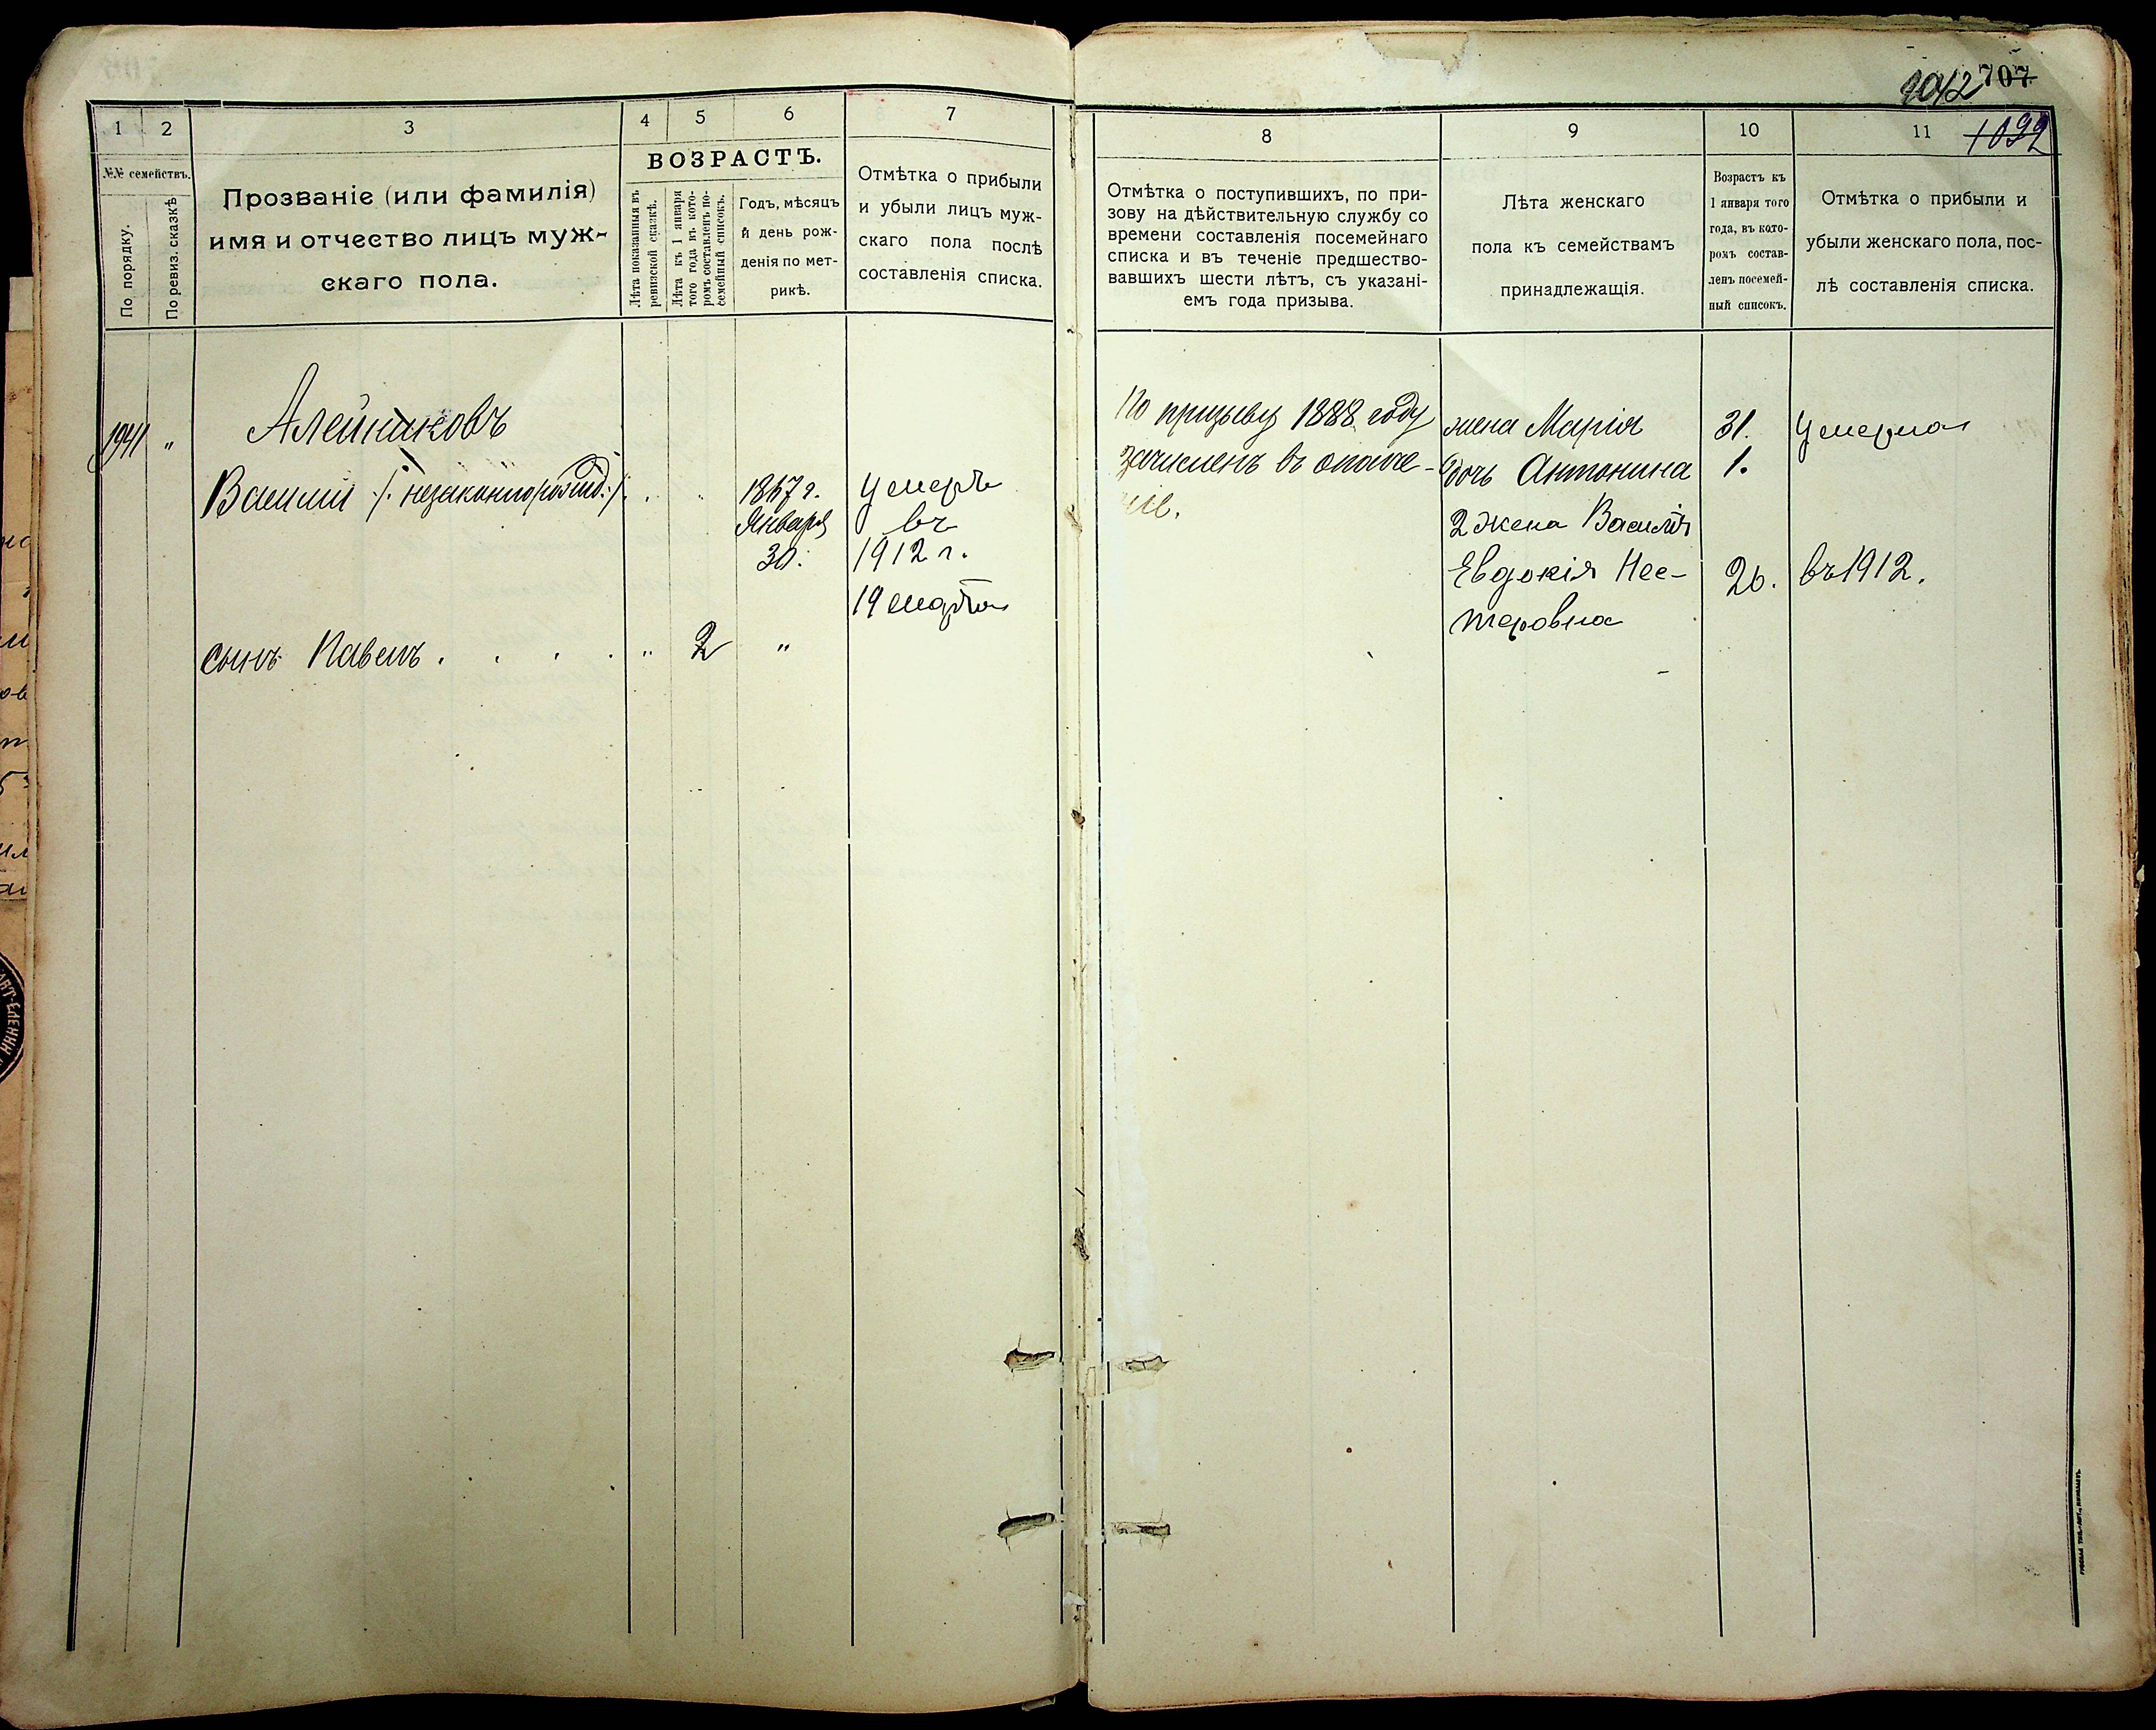 1042 707
1 2 3 4 5 6 7
№№ семействъ.
По порядку.
По ревиз. сказкѣ
Прозваніе (или фамилія)
имя и отчество лицъ муж-
скаго пола.
ВОЗРАСТЪ.
Лѣта показанныя въ
ревизской сказкѣ.
Лѣта къ 1 января
того года въ кото-
ромъ составленъ по-
семейный списокъ.
Годъ, мѣсяцъ
и день рож-
денія по мет-
рикѣ.
Отмѣтка о прибыли
и убыли лицъ муж-
скаго пола послѣ
составленія списка.
1941 "
Алейниковъ
Василій /: незаконнорожд:/. . "
1867 г.
Января
30.
Умеръ
въ
1912 г.
19 марта
сынъ Павелъ . . . . " 2 "
8 9 10 11 1099
Отмѣтка о поступившихъ, по при-
зову на дѣйствительную службу со
времени составленія посемейнаго
списка и въ теченіе предшество-
вавшихъ шести лѣтъ, съ указані-
емъ года призыва.
Лѣта женскаго
пола къ семействамъ
принадлежащія.
Возрастъ къ
1 января того
года, въ кото-
ромъ состав-
ленъ посемей-
ный списокъ.
Отмѣтка о прибыли и
убыли женскаго пола, пос-
лѣ составленія списка.
По призыву 1888 году
зачисленъ въ ополче-
ніе.
жена Марія 31. Умерла
дочь Антонина 1.
2 жена Василія
Евдокія Нес- 26. въ 1912.
теровна